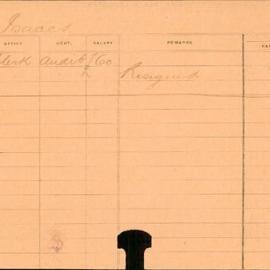 Isaacs
OFFICE DEPT. SALARY REMARKS
Clerk Audit $60 Resigned